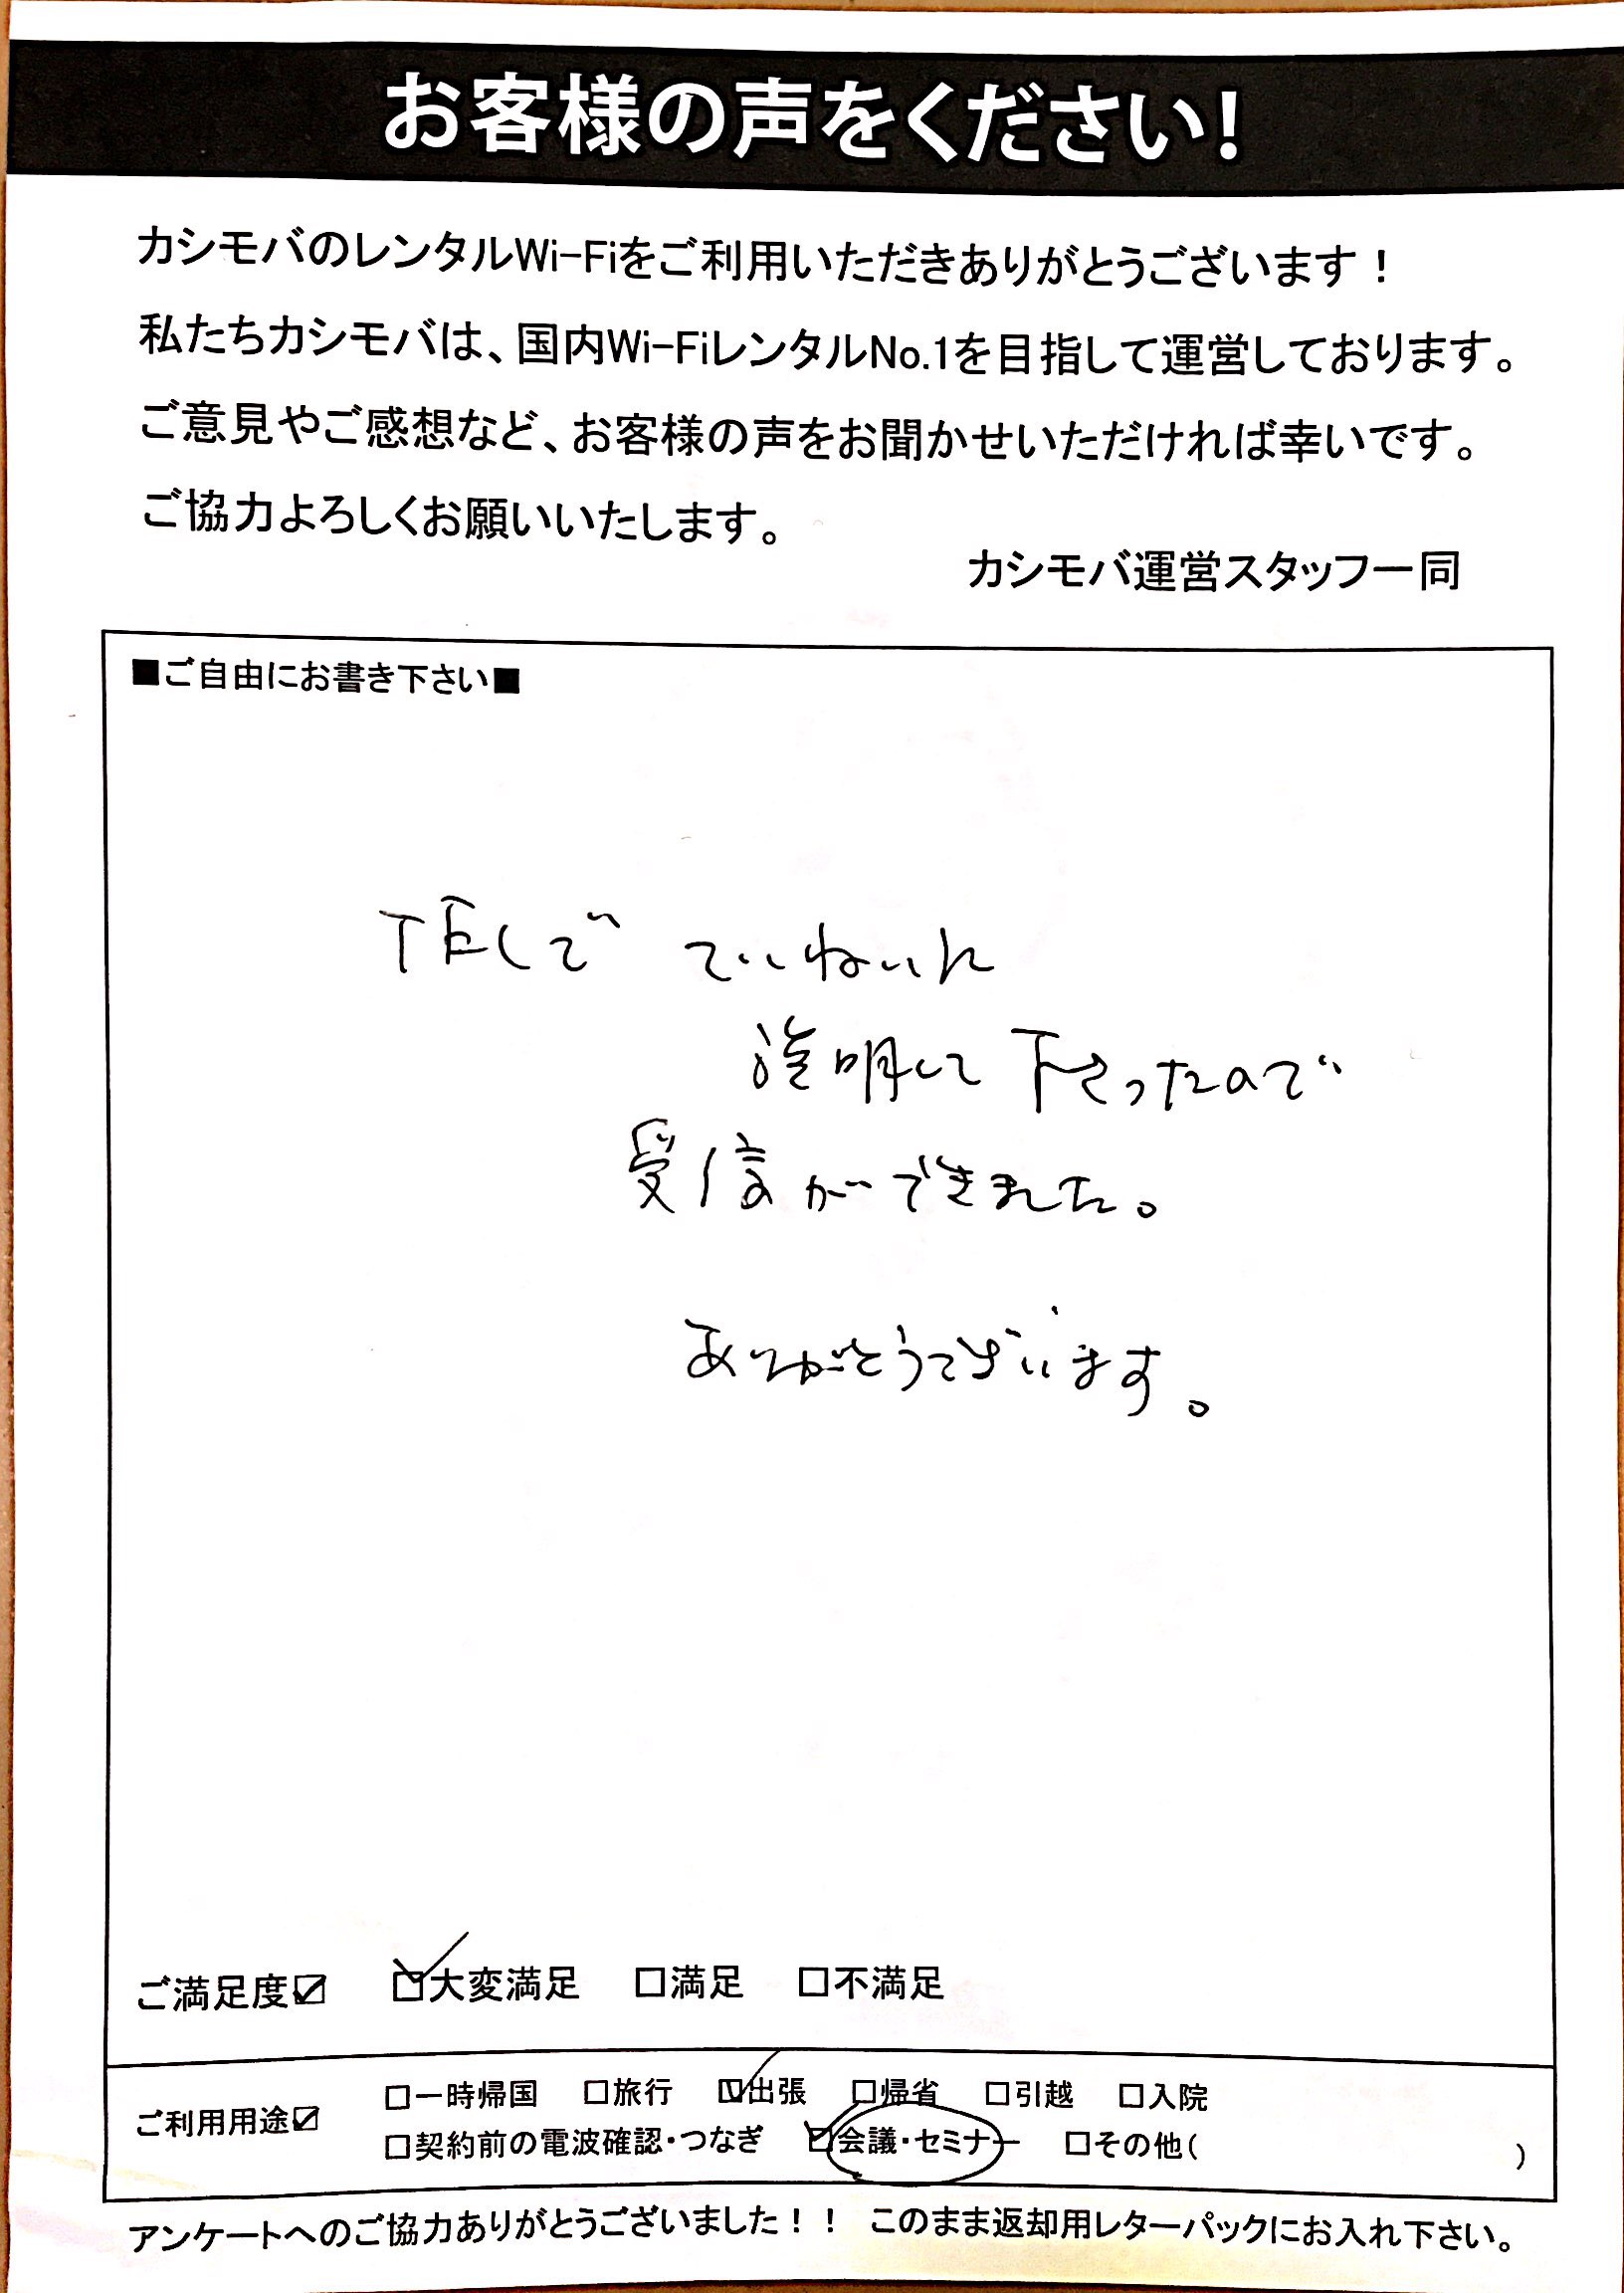 お客様の声をください!
カシモバのレンタルWi-Fiをご利用いただきありがとうございます！
私たちカシモバは、国内Wi-FiレンタルNo.1を目指して運営しております。
ご意見やご感想など、お客様の声をお聞かせいただければ幸いです。
ご協力よろしくお願いいたします。
カシモバ運営スタッフ一同
■ご自由にお書き下さい■
TELで ていねいに
説明して下さったので
受信ができました。
ありがとうございます。
ご満足度☑ ☑大変満足 □満足 □不満足
ご利用用途☑ □一時帰国 □旅行 ☑出張 □帰省 □引越 □入院
□契約前の電波確認・つなぎ ☑会議・セミナー □その他( )
アンケートへのご協力ありがとうございました！！ このまま返却用レターパックにお入れ下さい。